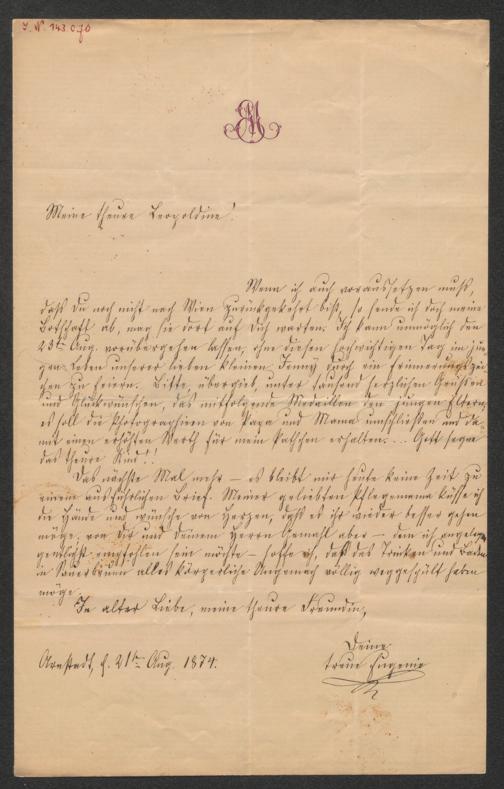 I. N. 143.070
Meine theure Leopoldine!
Wenn ich auch voraussetzen muß,
daß Du noch nicht nach Wien zurückgekehrt bist, so sende ich doch meine
Botschaft ab, mag sie dort auf Dich warten. Ich kann unmöglich den
23ten Aug. vorübergehen lassen, ohne diesen hochwichtigen Tag im jun-
gen Leben unserer lieben kleinen Jenny durch ein Erinnerungszei-
chen zu feiern. Bitte, übergieb, unter tausend herzlichen Grüßen
und Glückwünschen, das mitfolgende Medaillon den jungen Eltern,
es soll die Photographieen von Papa und Mama umschließen und da-
mit einen erhöhten Werth für mein Pathchen erhalten... Gott segne
das theure Kind!!
Das nächste Mal mehr – es bleibt mir heute keine Zeit zu
einem ausführlichen Brief. Meiner geliebten Pflegemama küsse ich
die Hände und wünsche von Herzen, daß es ihr wieder besser gehen
möge, von Dir und Deinem Herrn Gemahl aber – dem ich angelegen-
tlichst empfohlen sein möchte – hoffe ich, daß das Trinken und Baden
in Sauerbrunn alles körperliche Ungemach völlig weggespült haben
möge.
In alter Liebe, meine theure Freundin,
Deine
treue Eugenie
Arnstadt, d. 21ten Aug. 1874.